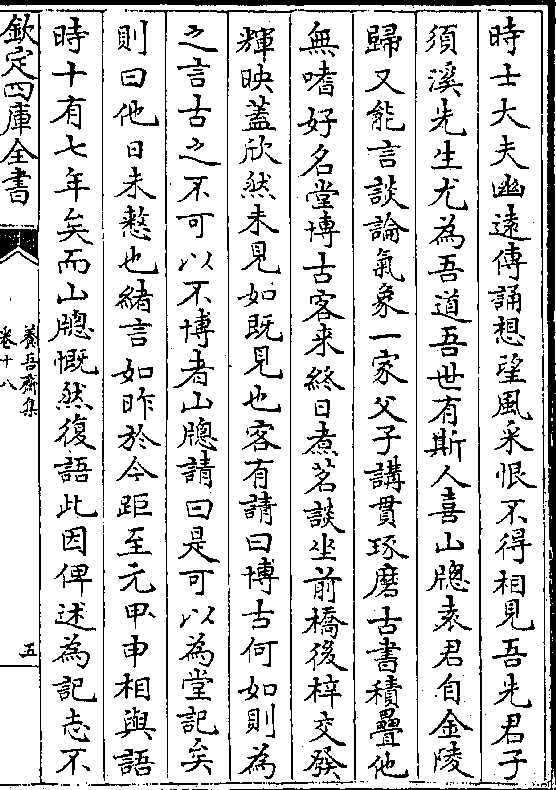 時士大夫幽遠傳誦想望風采恨不得相見吾先君子
須溪先生尤為吾道吾世有斯人喜山牕袁君自金陵
歸又能言談論氣象一家父子講貫琢磨古書積疊他
無嗜好名堂博古客来終日煮茗談坐前橋後梓交發
輝映蓋欣然未見如既見也客有請曰博古何如則為
之言古之不可以不博者山牕請曰是可以為堂記矣
則曰他日未憗也緒言如昨於今距至元甲申相與語
時十有七年矣而山牕慨然復語此因俾述為記志不
欽定四庫全書
養吾齋集
卷十八
五